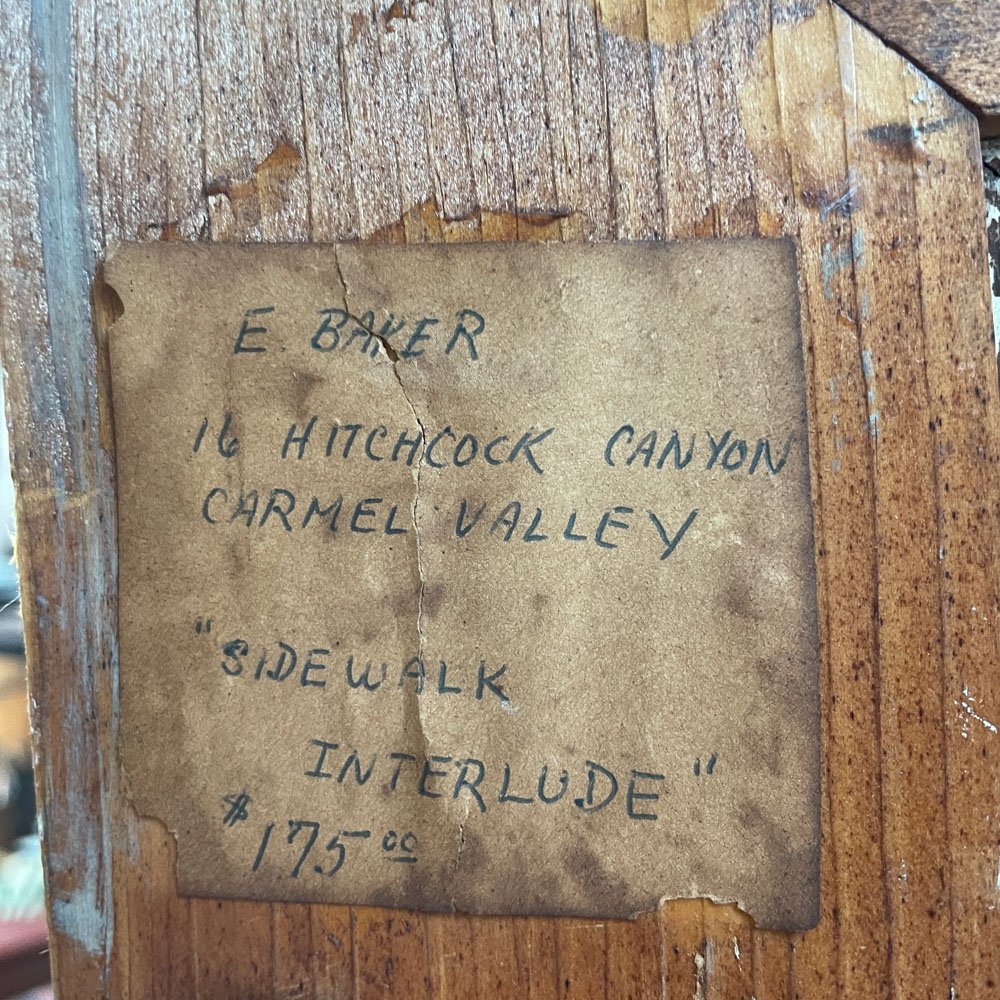 E. BAKER
16 HITCHCOCK CANYON
CARMEL VALLEY
"SIDEWALK
INTERLUDE"
$175.00